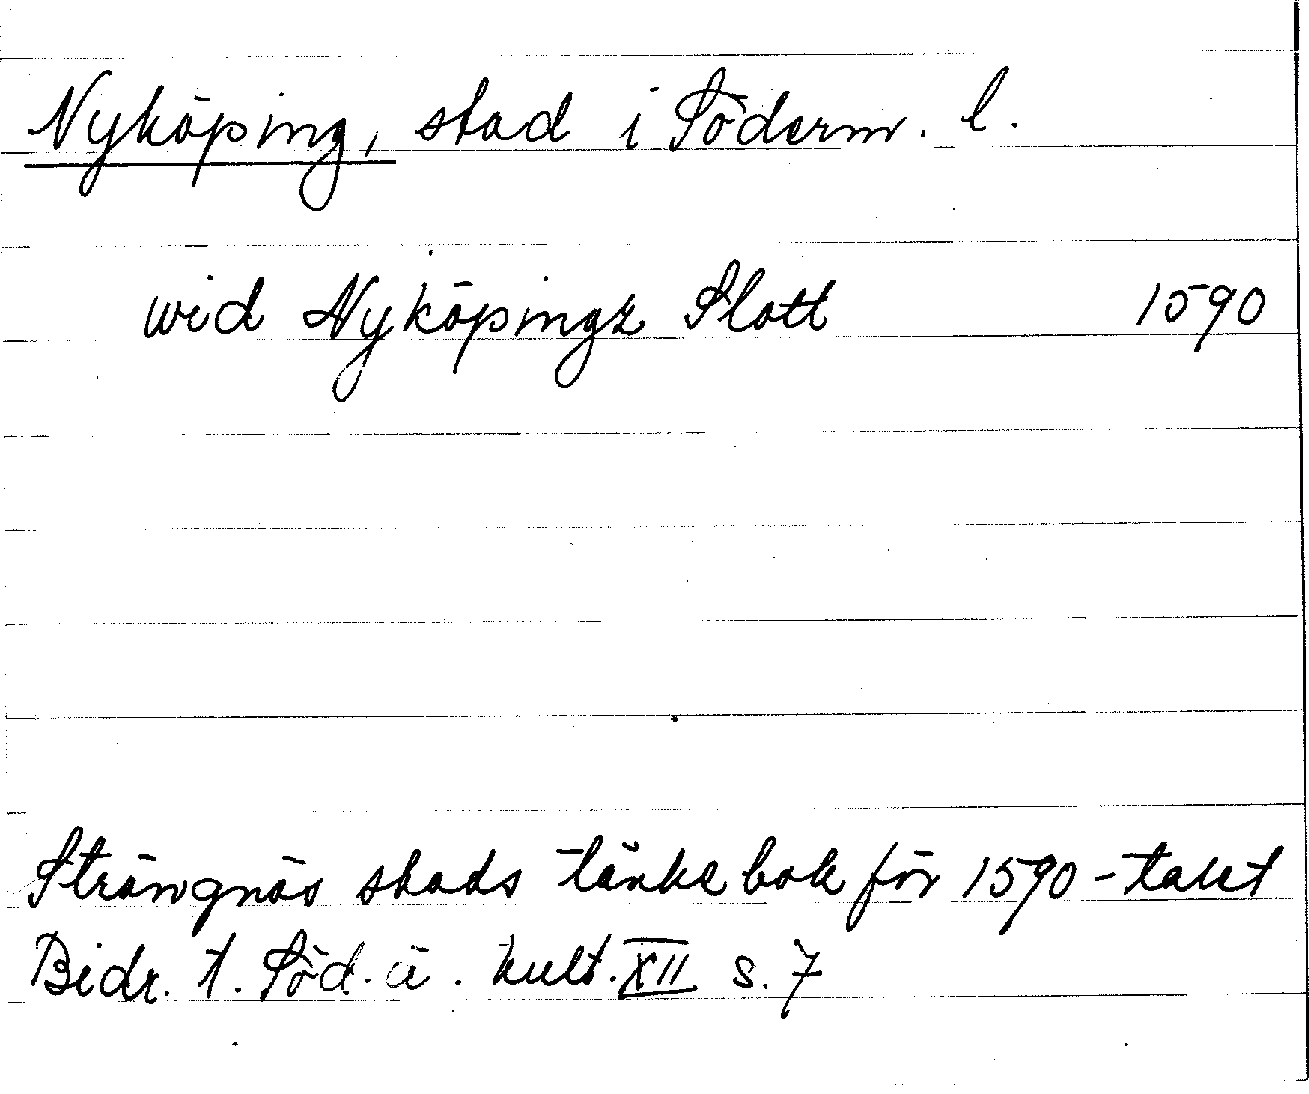 Nyköping, stad i Söderm. l.
wid Nyköpingz Slott 1590
Strängnäs stads tänkebok för 1590-talet
Bidr. t. Söd. ä. kult. XII s. 7